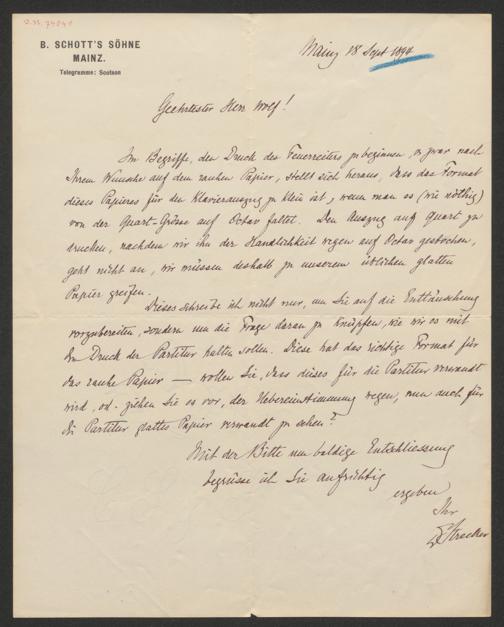 B. SCHOTT'S SÖHNE
MAINZ.
Telegramme: Scotson
Mainz 18 Sept 1894
Geehrtester Herr Wolf!
Im Begriffe, den Druck des Feuerreiters zu beginnen, u. zwar nach
Ihrem Wunsche auf dem rauhen Papier, stellt sich heraus, dass das Format
dieses Papieres für den Klavierauszug zu klein ist, wenn man es (wie nöthig)
von der Quart-Grösse auf Octav faltet. Den Auszug auf Quart zu
drucken, nachdem wir ihn der Handlichkeit wegen auf Octav gestochen,
geht nicht an, wir müssen deshalb zu unserem üblichen glatten
Papier greifen.
Dieses schreibe ich nicht nur, um Sie auf die Enttäuschung
vorzubereiten, sondern um die Frage daran zu knüpfen, wie wir es mit
dem Druck der Partitur halten sollen. Diese hat das richtige Format für
das rauhe Papier — wollen Sie, dass dieses für die Partitur verwandt
wird, od. ziehen Sie es vor, der Uebereinstimmung wegen, nun auch für
die Partitur glattes Papier verwandt zu sehen?
Mit der Bitte um baldige Entschliessung
begrüsse ich Sie aufrichtig
ergeben
Ihr
Strecker